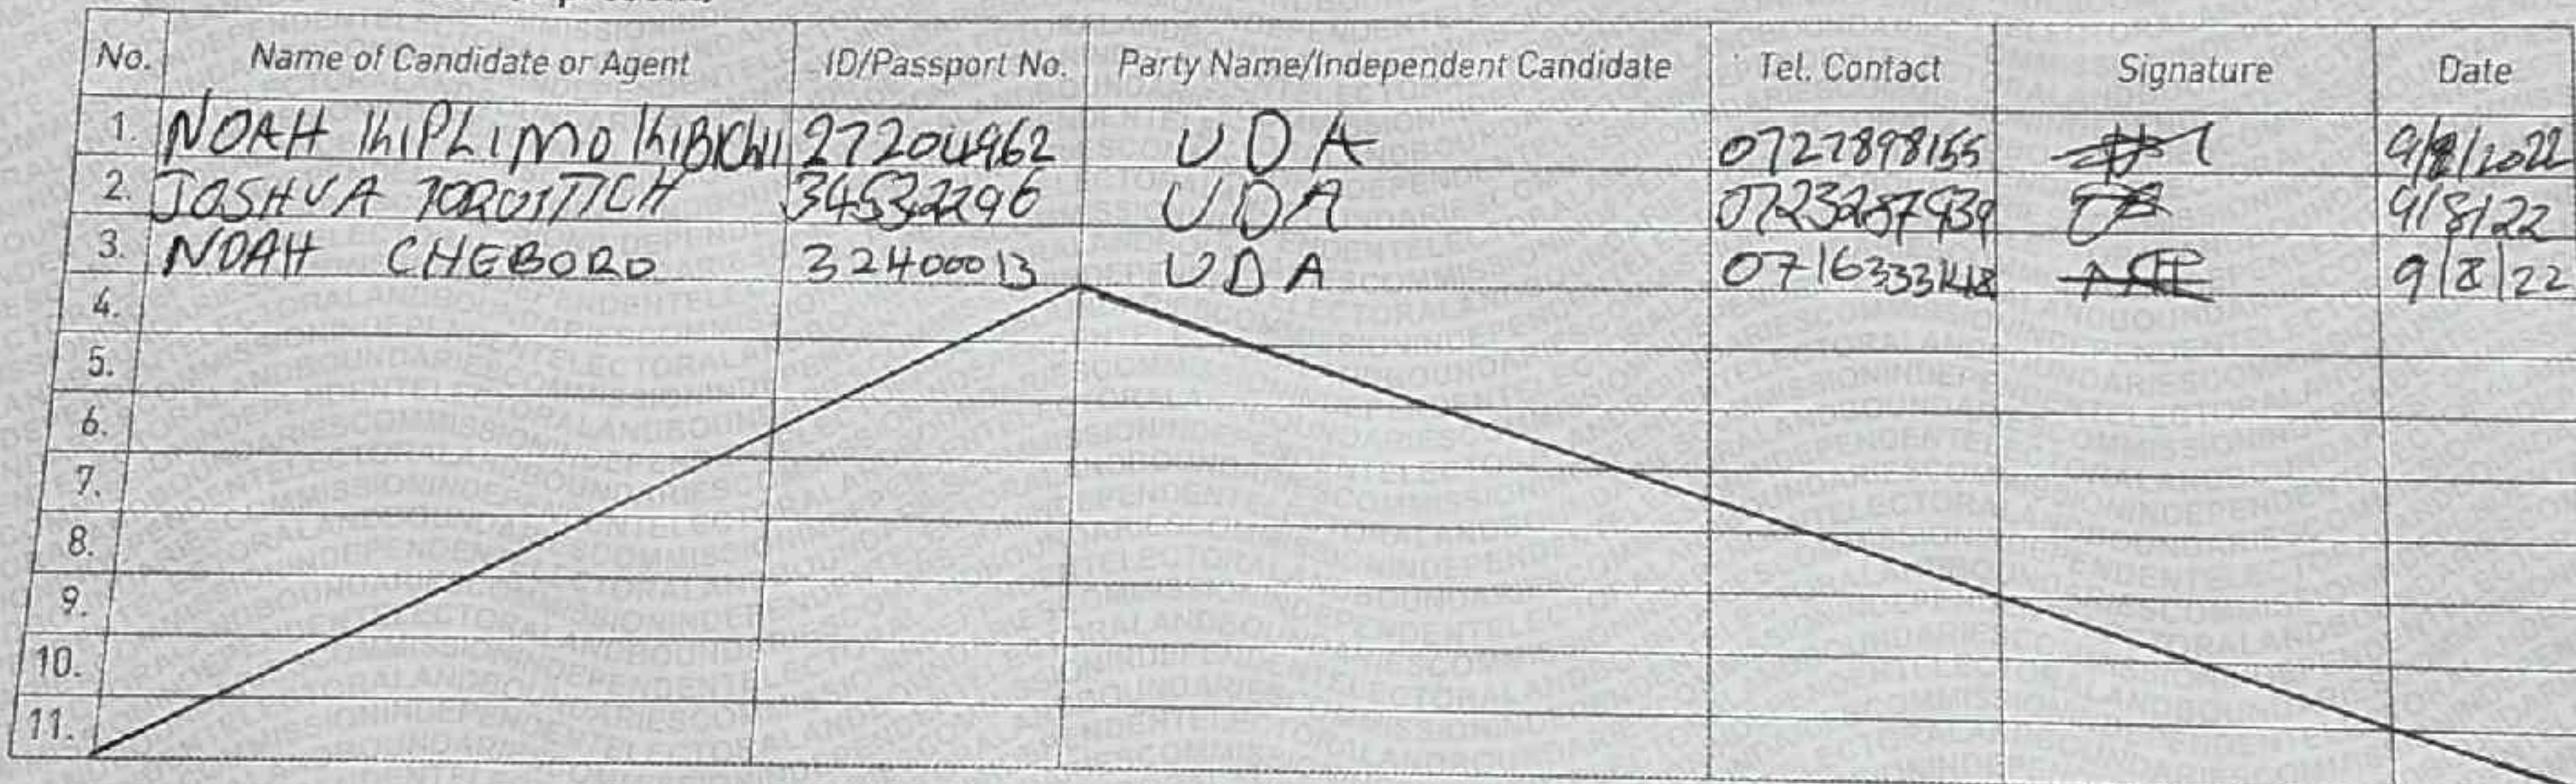 No. Name of Candidate or Agent ID/Passport No. Party Name/Independent Candidate Tel. Contact Signature Date
1. NOAH KIPLIMO KIBICHII 27204962 UDA 0727898155 9/8/2022
2. JOSHUA TOROITICH 34532296 UDA 0723287939 9/8/22
3. NOAH CHEBORO 32400013 UDA 9/8/22
4.
5.
6.
7.
8.
9.
10.
11.